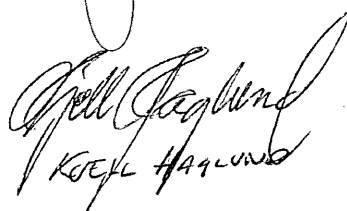 Kjell Haglund
KJELL HAGLUND